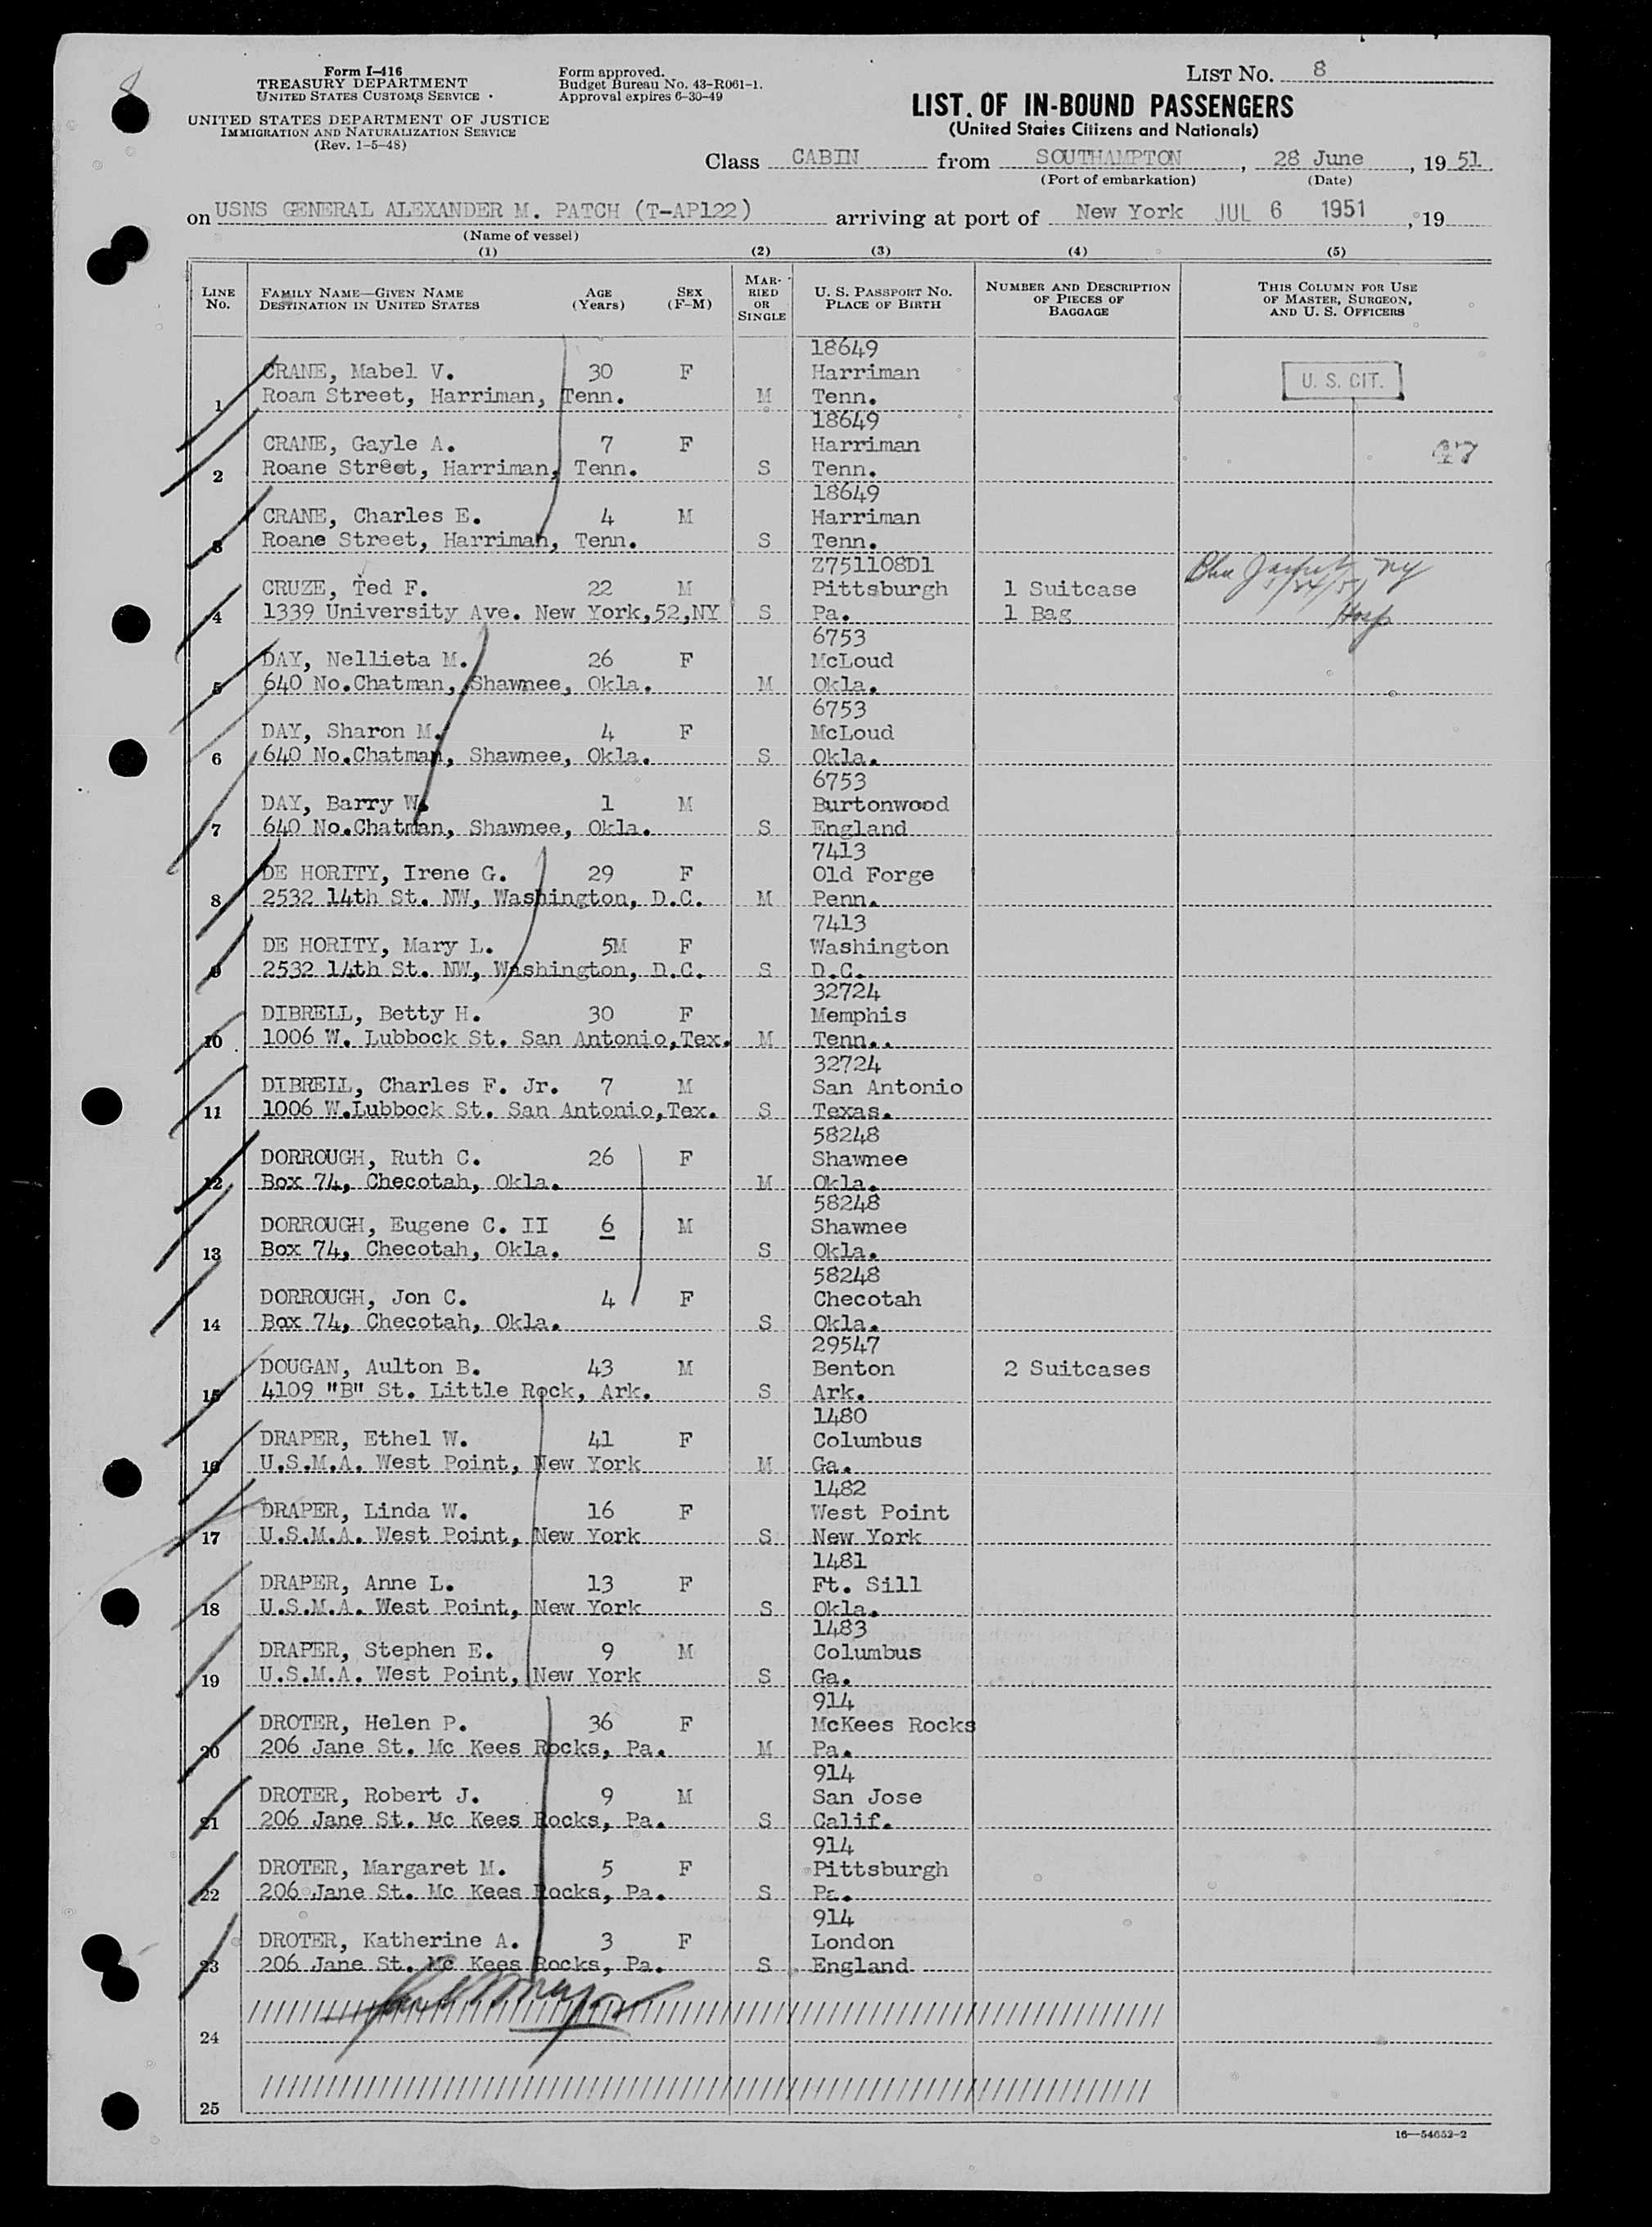 8
Form I-416
TREASURY DEPARTMENT
UNITED STATES CUSTOMS SERVICE
UNITED STATES DEPARTMENT OF JUSTICE
IMMIGRATION AND NATURALIZATION SERVICE
(Rev. 1-5-48)
Form approved.
Budget Bureau No. 43-R061-1.
Approval expires 6-30-49
LIST NO. 8
LIST OF IN-BOUND PASSENGERS
(United States Citizens and Nationals)
Class CABIN from SOUTHAMPTON, 28 June, 1951
(Port of embarkation) (Date)
on USNS GENERAL ALEXANDER M. PATCH (T-AP122) arriving at port of New York JUL 6 1951, 19
(Name of vessel)
(1) (2) (3) (4) (5)
LINE NO.
FAMILY NAME—GIVEN NAME
DESTINATION IN UNITED STATES
AGE (Years)
SEX (F-M)
MARRIED OR SINGLE
U. S. PASSPORT NO.
PLACE OF BIRTH
NUMBER AND DESCRIPTION OF PIECES OF BAGGAGE
THIS COLUMN FOR USE OF MASTER, SURGEON, AND U. S. OFFICERS
18649
CRANE, Mabel V. 30 F Harriman U. S. CIT.
1 Roam Street, Harriman, Tenn. M Tenn.
18649
CRANE, Gayle A. 7 F Harriman
2 Roane Street, Harriman, Tenn. S Tenn.
18649
CRANE, Charles E. 4 M Harriman
3 Roane Street, Harriman, Tenn. S Tenn.
Z751108D1
CRUZE, Ted F. 22 M Pittsburgh 1 Suitcase NY
4 1339 University Ave. New York,52,NY S Pa. 1 Bag Hosp
6753
DAY, Nellieta M. 26 F McLoud
5 640 No.Chatman, Shawnee, Okla. M Okla.
6753
DAY, Sharon M. 4 F McLoud
6 640 No.Chatman, Shawnee, Okla. S Okla.
6753
DAY, Barry W. 1 M Burtonwood
7 640 No.Chatman, Shawnee, Okla. S England
7413
DE HORITY, Irene G. 29 F Old Forge
8 2532 14th St. NW, Washington, D.C. M Penn.
7413
DE HORITY, Mary L. 5M F Washington
9 2532 14th St. NW, Washington, D.C. S D.C.
32724
DIBRELL, Betty H. 30 F Memphis
10 1006 W. Lubbock St. San Antonio,Tex. M Tenn..
32724
DIBRELL, Charles F. Jr. 7 M San Antonio
11 1006 W.Lubbock St. San Antonio,Tex. S Texas.
58248
DORROUGH, Ruth C. 26 F Shawnee
12 Box 74, Checotah, Okla. M Okla.
58248
DORROUGH, Eugene C. II 6 M Shawnee
13 Box 74, Checotah, Okla. S Okla.
58248
DORROUGH, Jon C. 4 F Checotah
14 Box 74, Checotah, Okla. S Okla.
29547
DOUGAN, Aulton B. 43 M Benton 2 Suitcases
15 4109 "B" St. Little Rock, Ark. S Ark.
1480
DRAPER, Ethel W. 41 F Columbus
16 U.S.M.A. West Point, New York M Ga.
1482
DRAPER, Linda W. 16 F West Point
17 U.S.M.A. West Point, New York S New York
1481
DRAPER, Anne L. 13 F Ft. Sill
18 U.S.M.A. West Point, New York S Okla.
1483
DRAPER, Stephen E. 9 M Columbus
19 U.S.M.A. West Point, New York S Ga.
914
DROTER, Helen P. 36 F McKees Rocks
20 206 Jane St. Mc Kees Rocks, Pa. M Pa.
914
DROTER, Robert J. 9 M San Jose
21 206 Jane St. Mc Kees Rocks, Pa. S Calif.
914
DROTER, Margaret M. 5 F Pittsburgh
22 206 Jane St. Mc Kees Rocks, Pa. S Pa.
914
DROTER, Katherine A. 3 F London
23 206 Jane St. Mc Kees Rocks, Pa. S England
24
25
16—54652-2